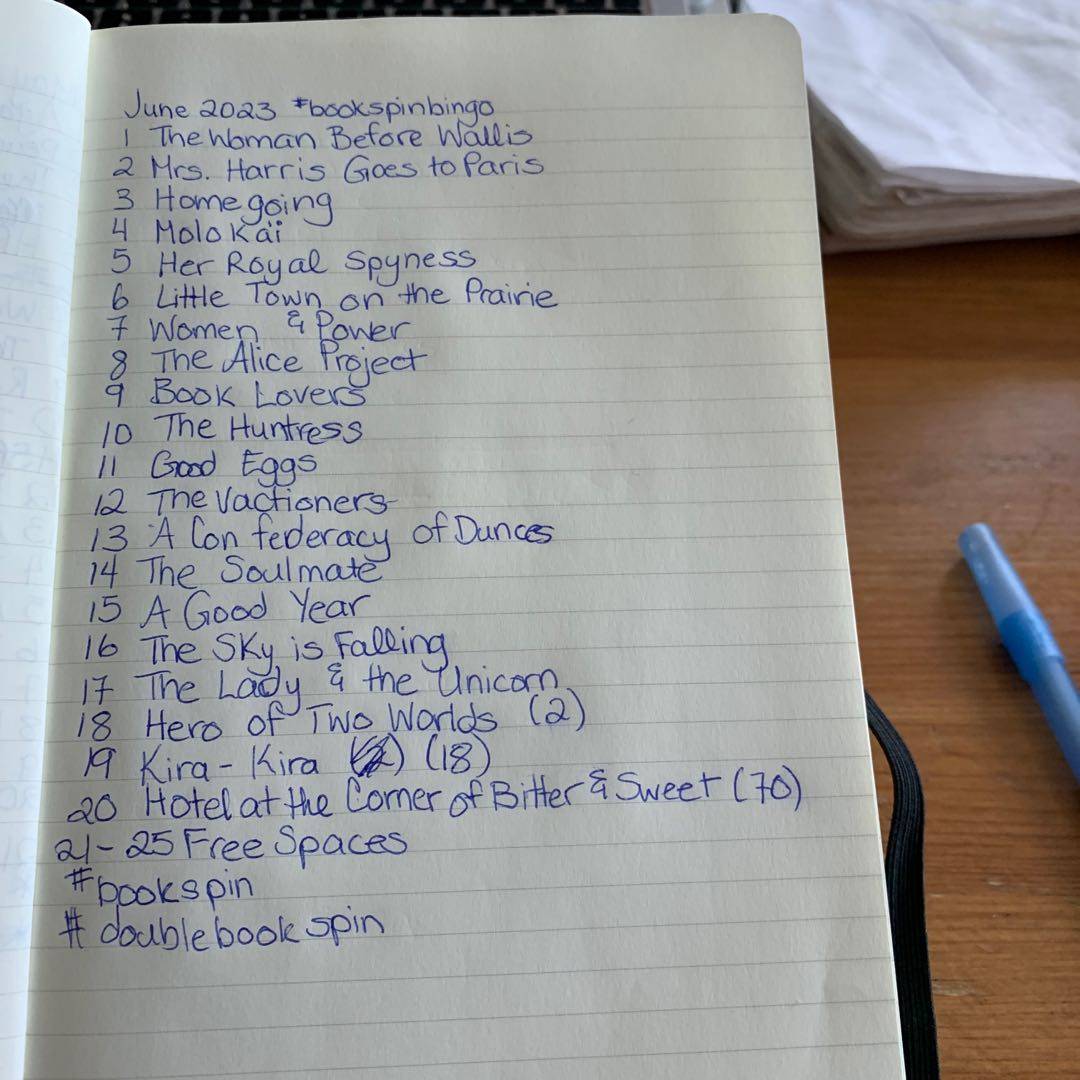 June 2023 #bookspinbingo
1 The Woman Before Wallis
2 Mrs. Harris Goes to Paris
3 Homegoing
4 Moloka'i
5 Her Royal Spyness
6 Little Town on the Prairie
7 Women & Power
8 The Alice Project
9 Book Lovers
10 The Huntress
11 Good Eggs
12 The Vactioners
13 A Confederacy of Dunces
14 The Soulmate
15 A Good Year
16 The Sky is Falling
17 The Lady & the Unicorn
18 Hero of Two Worlds (2)
19 Kira-Kira (18)
20 Hotel at the Corner of Bitter & Sweet (70)
21-25 Free Spaces
#bookspin
#doublebookspin